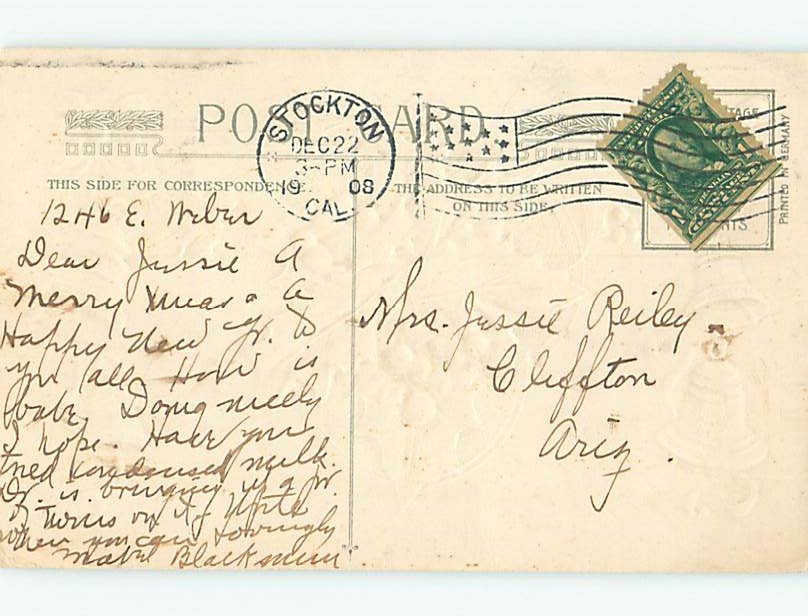 POST CARD
STOCKTON
DEC 22
3-PM
19 08
CAL.
THIS SIDE FOR CORRESPONDENCE
THE ADDRESS TO BE WRITTEN
ON THIS SIDE.
PRINTED IN GERMANY
1246 E. Weber
Dear Jessie A
Merry Xmas & a
Happy New Yr. to
you all How is
babe. Doing nicely
I hope. Have you
tried condensed milk.
Dr. is bringing up a pr.
of twins on it. Write
when you can Lovingly
Mabel Blackmun
Mrs. Jessie Reiley
Cliffton
Ariz.